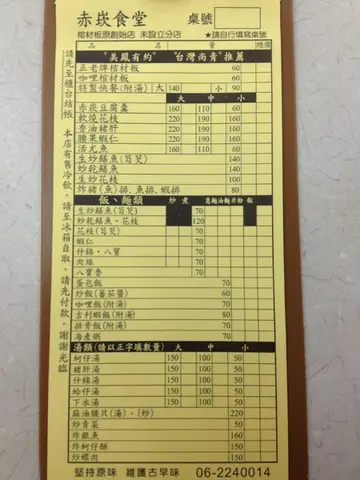 赤崁食堂 桌號
棺材板原創始店 未設立分店 ★請自行填寫桌號
品 名 量 總價
"美鳳有約" "台灣尚青"推薦
正老牌棺材板 60
咖哩棺材板 60
特製快餐(附湯) 大 140 小 90
大 中 小
赤崁豆腐羹 160 110 60
軟燒花枝 220 190 160
香油豬肝 220 190 160
腰果蝦仁 220 190 160
活尤魚 160 110 60
生炒鱔魚(筍芡) 140
炒乾鱔魚 140
生炒花枝 100
炸豬(魚)排、魚排、蝦排 80
飯、麵類 炒 煮 意麵 油麵 米粉 飯
生炒鱔魚(筍芡) 70
炒乾鱔魚、花枝 120
花枝(筍芡) 70
蝦仁 70
什錦、八寶 70
肉絲 70
八寶魯 70
蛋包飯 70
炒飯(蕃茄醬) 60
咖哩飯(附湯) 70
吉利蝦飯(附湯) 80
排骨飯(附湯) 80
海產粥 70
湯類(請以正字填數量) 大 中 小
蚵仔湯 150 100 50
豬肝湯 150 100 50
什錦湯 150 100 50
蛤仔湯 150 100 50
下水湯 150 100 50
麻油腰只(湯、(炒) 220
炒青菜 50
炸虱魚 160
炸蚵仔酥 150
炒螺肉 150
堅持原味 維護古早味 06-2240014
請先至櫃台結帳 本店有售冷飲，請至冰箱自取，請先付款，謝謝光臨